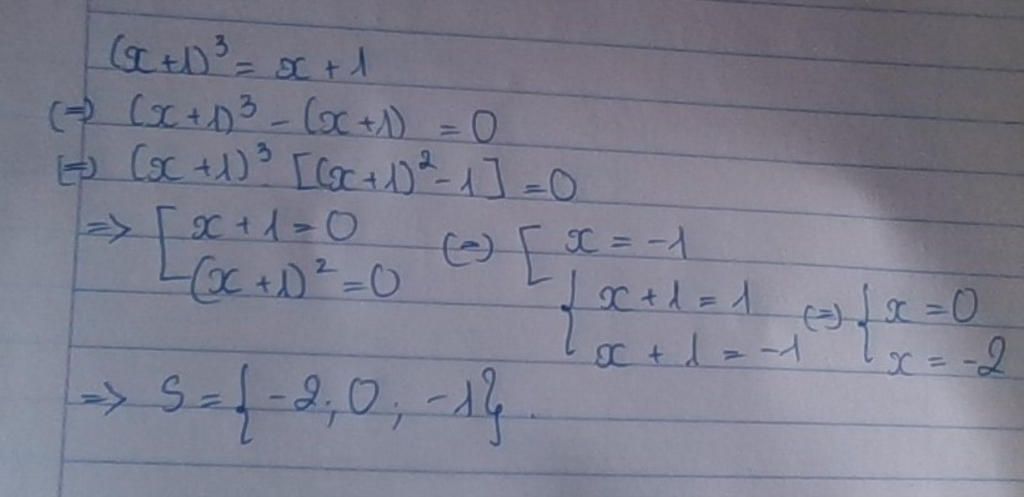 (x+1)³ = x + 1
(=) (x+1)³ - (x+1) = 0
(=) (x+1)³ [(x+1)²-1] = 0
=> [ x+1=0 (=) [ x = -1
(x+1)²=0 { x+1 = 1 (=) { x = 0
x + 1 = -1 x = -2
=> S = { -2 ; 0 ; -1}.